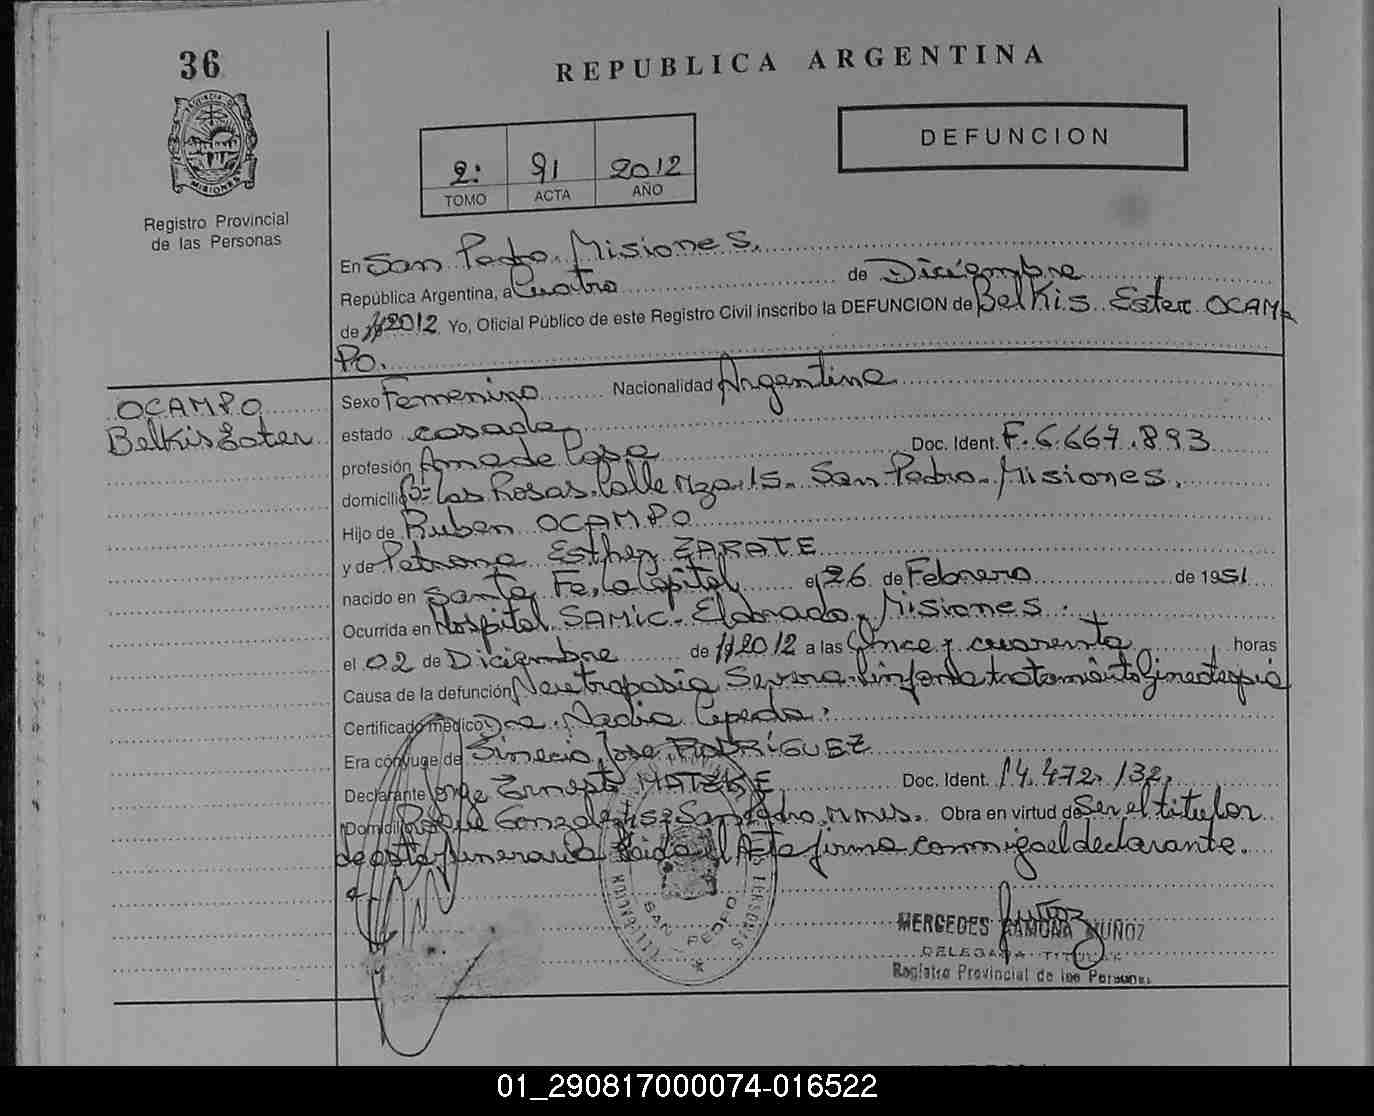 36
REPUBLICA ARGENTINA
DEFUNCION
2: 91 2012
TOMO ACTA AÑO
Registro Provincial
de las Personas
En San Pedro. Misiones.
República Argentina, a Cuatro de Diciembre
de 2012 Yo, Oficial Público de este Registro Civil inscribo la DEFUNCION de Belkis Ester OCAM-
PO.
OCAMPO
Belkis Ester
Sexo Femenino Nacionalidad Argentina
estado casada
profesión Ama de Casa Doc. Ident. F. 6.667.893
domicilio Bº Las Rosas. Calle Mza. 15. San Pedro. Misiones.
Hijo de Ruben OCAMPO
y de Petrona Esther ZARATE
nacido en Santa Fe, La Capital el 26 de Febrero de 1951
Ocurrida en Hospital SAMIC. Eldorado, Misiones.
el 02 de Diciembre de 2012 a las Once y cuarenta horas
Causa de la defunción Severa
Certificado médico Dra. Nadia Cepeda.
Era cónyuge de Sinecio Jose RODRÍGUEZ
Declarante Jorge Ernesto Doc. Ident. 14.472.132.
Domicilio San Pedro. Mnes. Obra en virtud de Ser el titular
de esta funeraria Leida el Acta firma conmigo el declarante.
SAN PEDRO
MERCEDES RAMONA MUÑOZ
DELEGADA TITULAR
Registro Provincial de las Personas
01_290817000074-016522